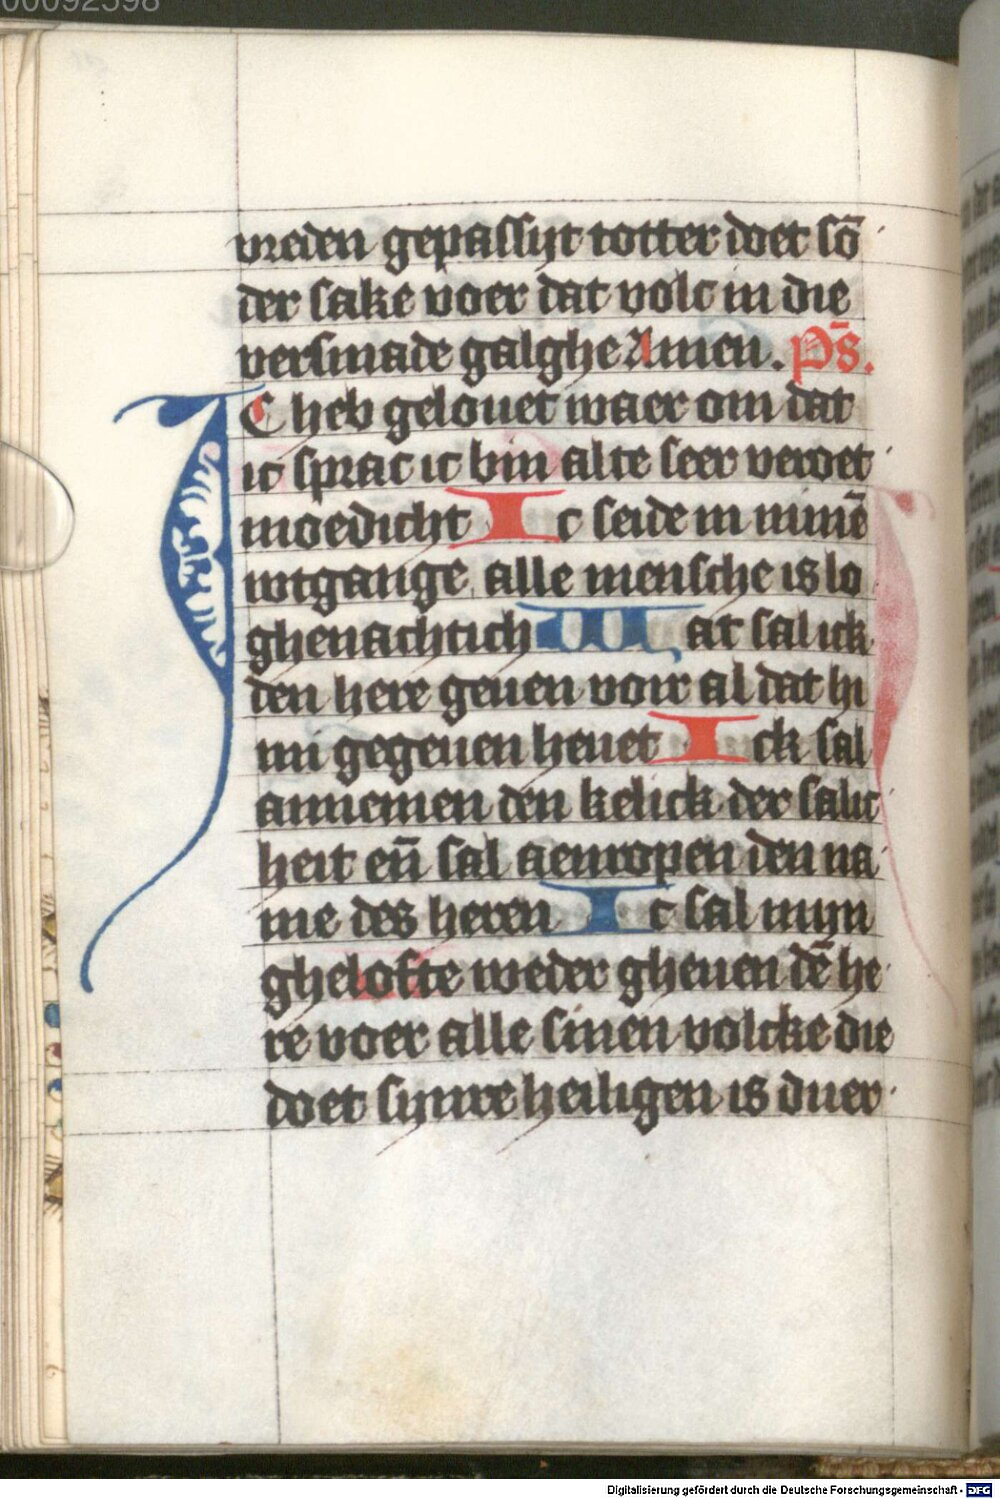 00092598
vreden gepassijt totter doet sō
der sake voer dat volc in die
versmade galghe Amen. Ps̄.
IC heb gelouet waer om dat
ic sprac ic bin alte seer veroet
moedicht Ic seide in minē
wtgange alle mensche is lo
ghenachtich Wat sal ick
den here geuen voir al dat hi
mi gegeuen heuet Ick sal
annemen den kelick der salic
heit eñ sal aenropen den na
me des heren Ic sal mijn
ghelofte weder gheuen dē he
re voer alle sinen volcke die
doet sijnre heiligen is duer
Digitalisierung gefördert durch die Deutsche Forschungsgemeinschaft - DFG